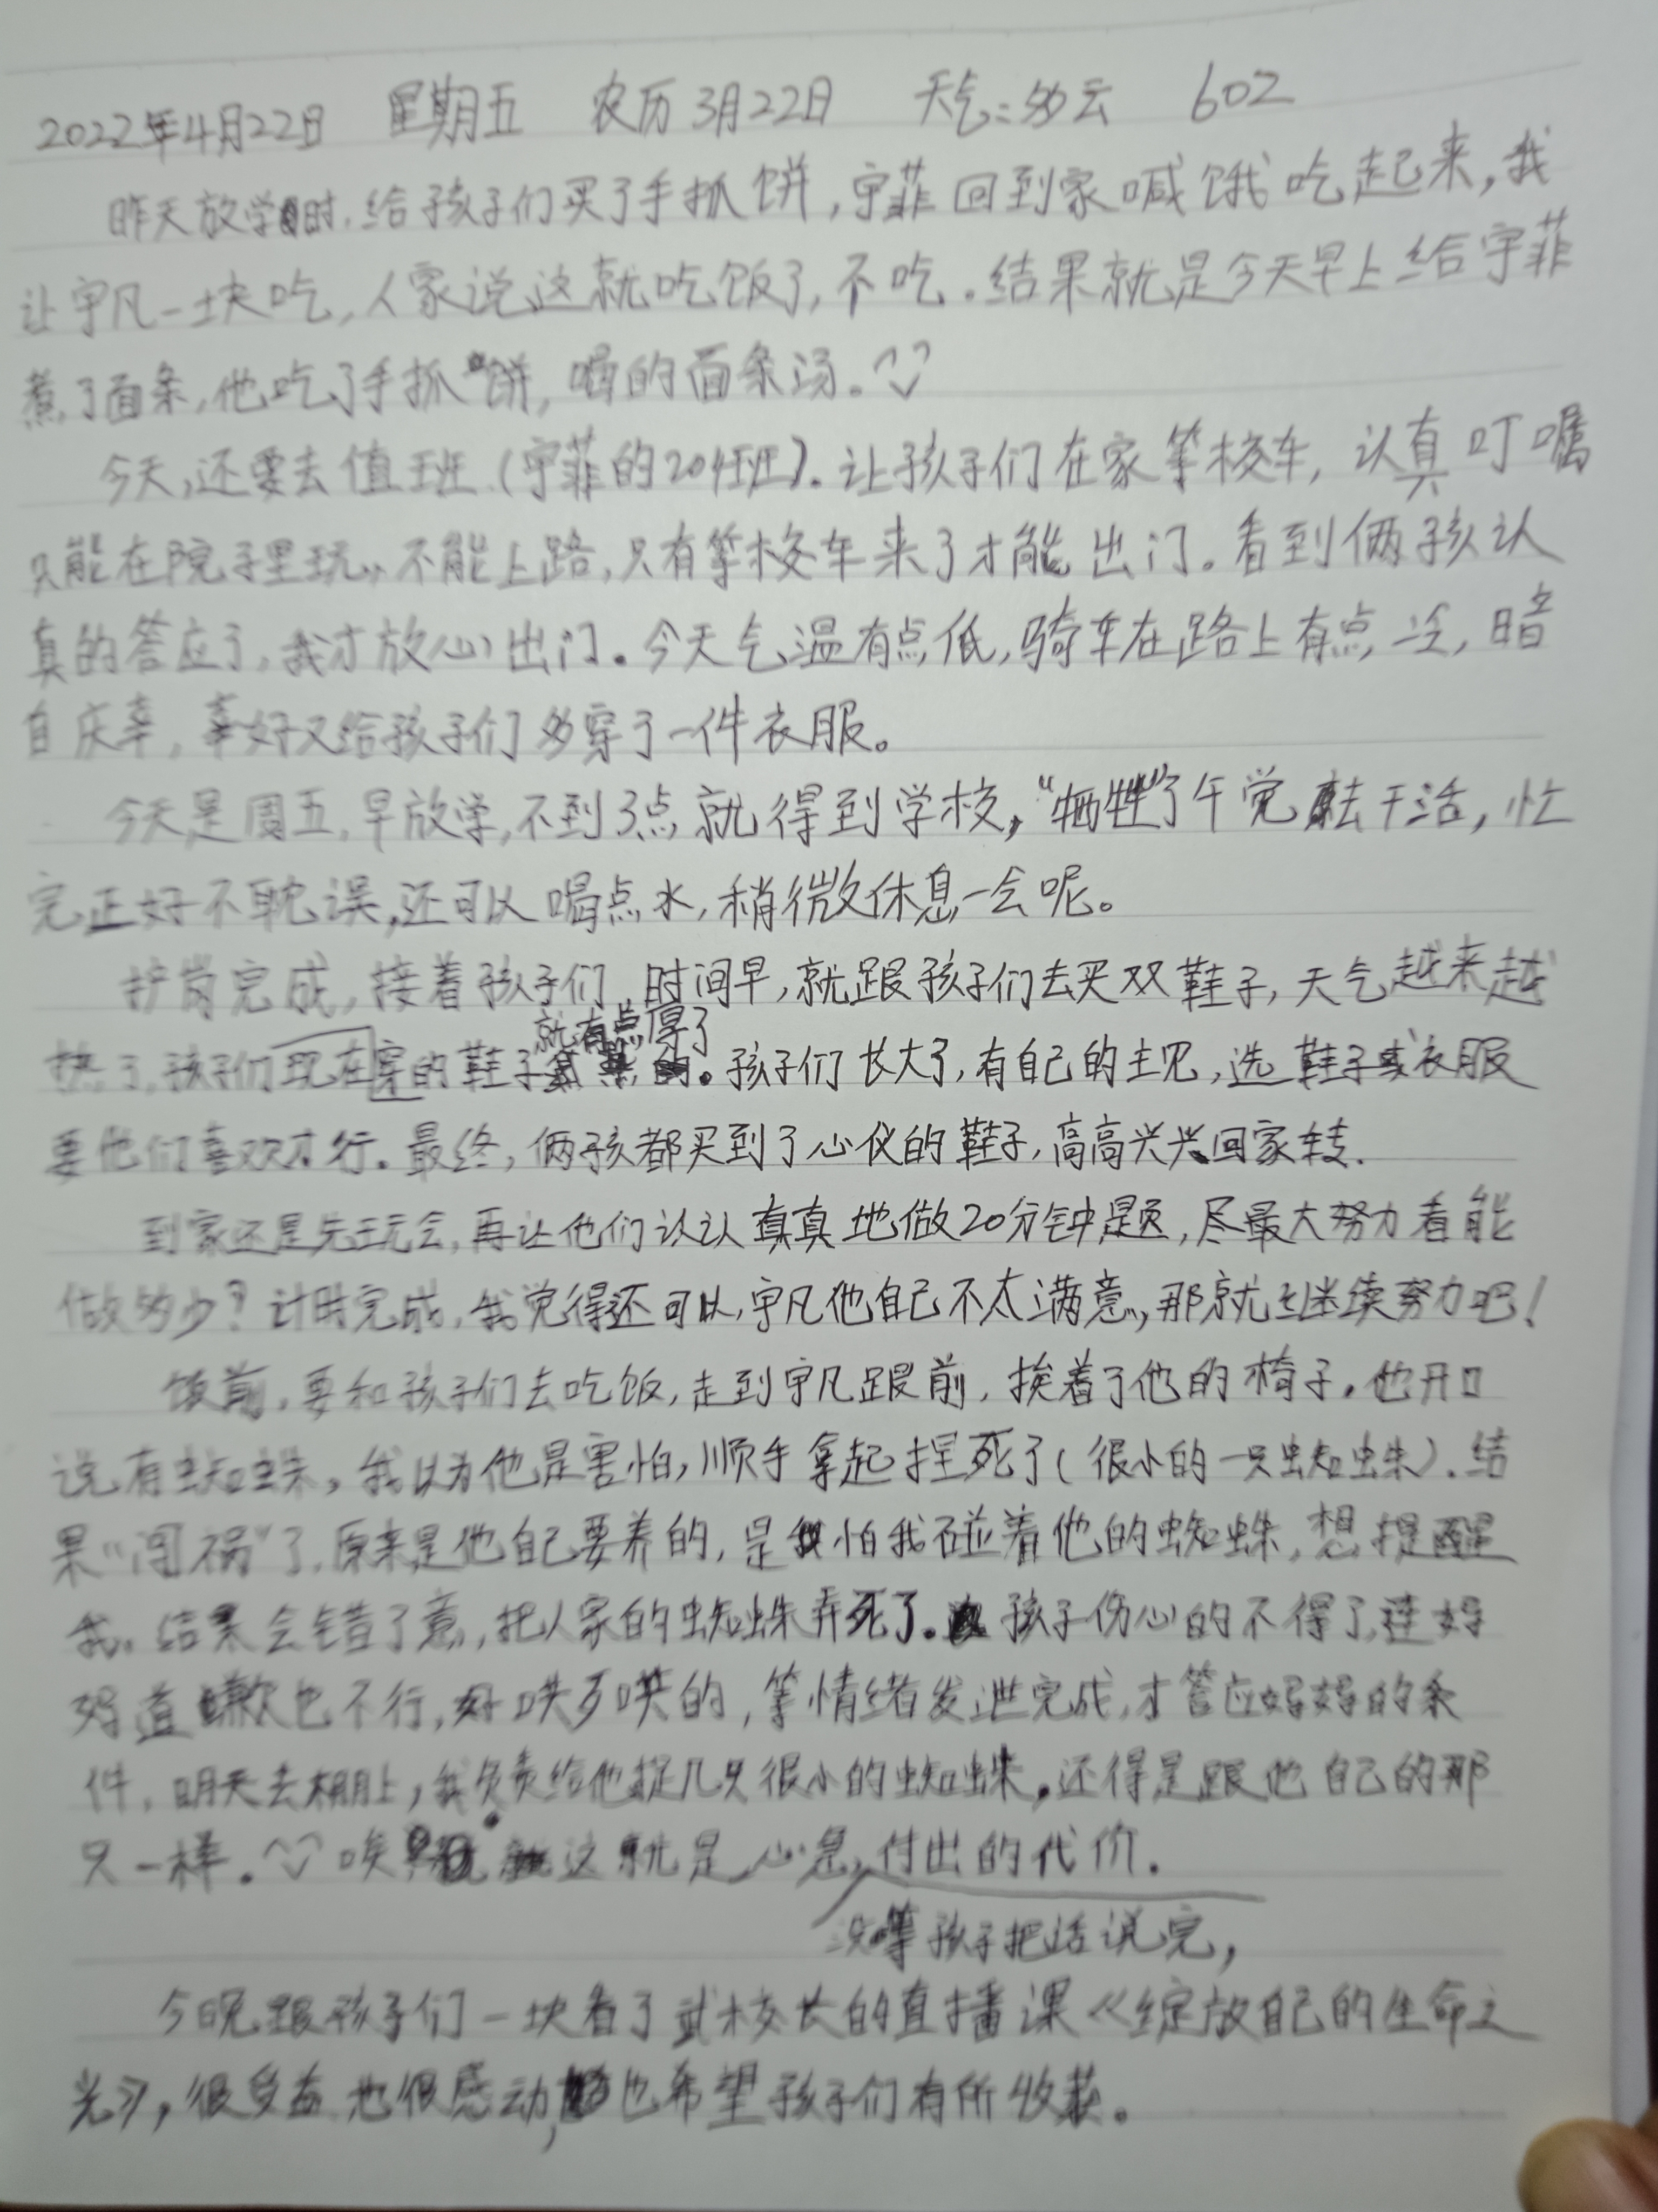 2022年4月22日 星期五 农历3月22日 天气:多云 602
昨天放学时,给孩子们买了手抓饼,宇菲回到家喊饿吃起来,我
让宇凡一块吃,人家说这就吃饭了,不吃。结果就是今天早上给宇菲
煮了面条,他吃了手抓饼,喝的面条汤。
今天,还要去值班(宇菲的204班)。让孩子们在家等校车,认真叮嘱
只能在院子里玩,不能上路,只有等校车来了才能出门。看到俩孩认
真的答应了,我才放心出门。今天气温有点低,骑车在路上有点冷,暗
自庆幸,幸好又给孩子们多穿了一件衣服。
今天是周五,早放学,不到3点就得到学校,“牺牲”了午觉去干活,忙
完正好不耽误,还可以喝点水,稍微休息一会呢。
护岗完成,接着孩子们,时间早,就跟孩子们去买双鞋子,天气越来越
就有点厚了
热了,孩子们现在穿的鞋子。孩子们长大了,有自己的主见,选鞋子或衣服
要他们喜欢才行。最终,俩孩都买到了心仪的鞋子,高高兴兴回家转.
到家还是先玩会,再让他们认认真真地做20分钟题,尽最大努力看能
做多少?计时完成,我觉得还可以,宇凡他自己不太满意,那就继续努力吧!
饭前,要和孩子们去吃饭,走到宇凡跟前,挨着了他的椅子,他开口
说有蜘蛛,我以为他是害怕,顺手拿起捏死了(很小的一只蜘蛛).结
果“闯祸”了,原来是他自己要养的,是怕我碰着他的蜘蛛,想提醒
我。结果会错了意,把人家的蜘蛛弄死了。孩子伤心的不得了,连妈
妈道歉也不行,好哄歹哄的,等情绪发泄完成,才答应妈妈的条
件,明天去棚上,我负责给他捉几只很小的蜘蛛,还得是跟他自己的那
只一样。唉 这就是心急,付出的代价.
没等孩子把话说完,
今晚跟孩子们一块看了武校长的直播课《绽放自己的生命之
光》,很受益,也很感动,也希望孩子们有所收获。